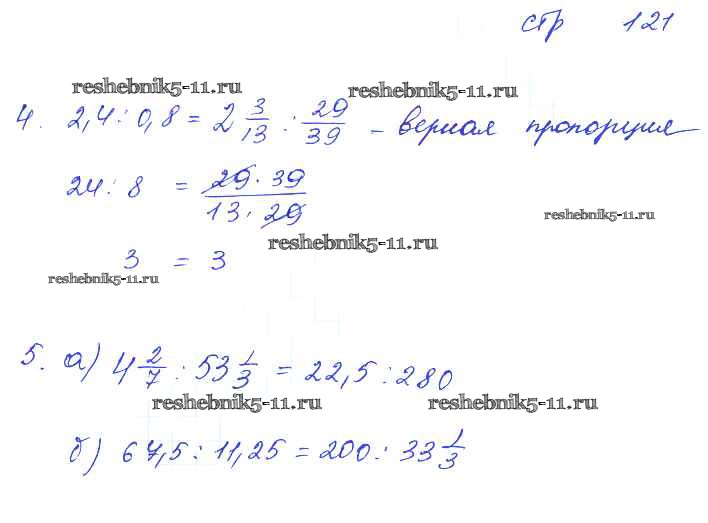 стр 121
reshebnik5-11.ru reshebnik5-11.ru
4. 2,4 : 0,8 = 2 3/13 : 29/39 – верная пропорция
24 : 8 = 29 · 39 / 13 · 29
reshebnik5-11.ru
reshebnik5-11.ru
3 = 3
reshebnik5-11.ru
5. а) 4 2/7 : 53 1/3 = 22,5 : 280
reshebnik5-11.ru reshebnik5-11.ru
б) 67,5 : 11,25 = 200 : 33 1/3